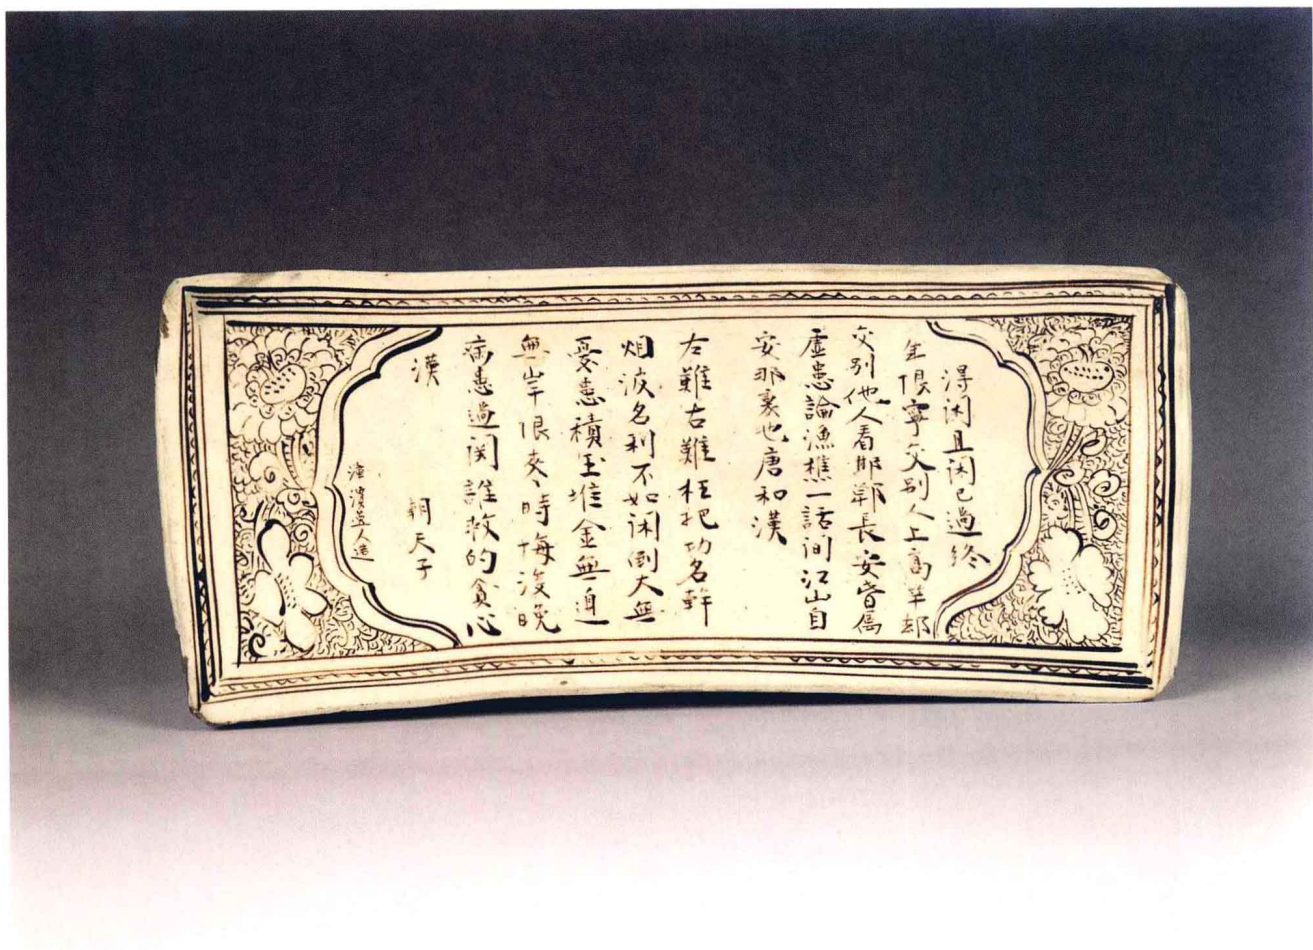 淂闲且闲已過終
年限寧交別人上高竿却
交別他人看邯鄲長安
虛患論漁樵一話间江山自
安那裏也唐和漢
左難右難枉把功名幹
烟波名利不如闲倒大無
憂患積玉堆金無邊
無岸限來時悔後晚
病患過関誰救的貪心
漢
朝天子
漳濱逸人造